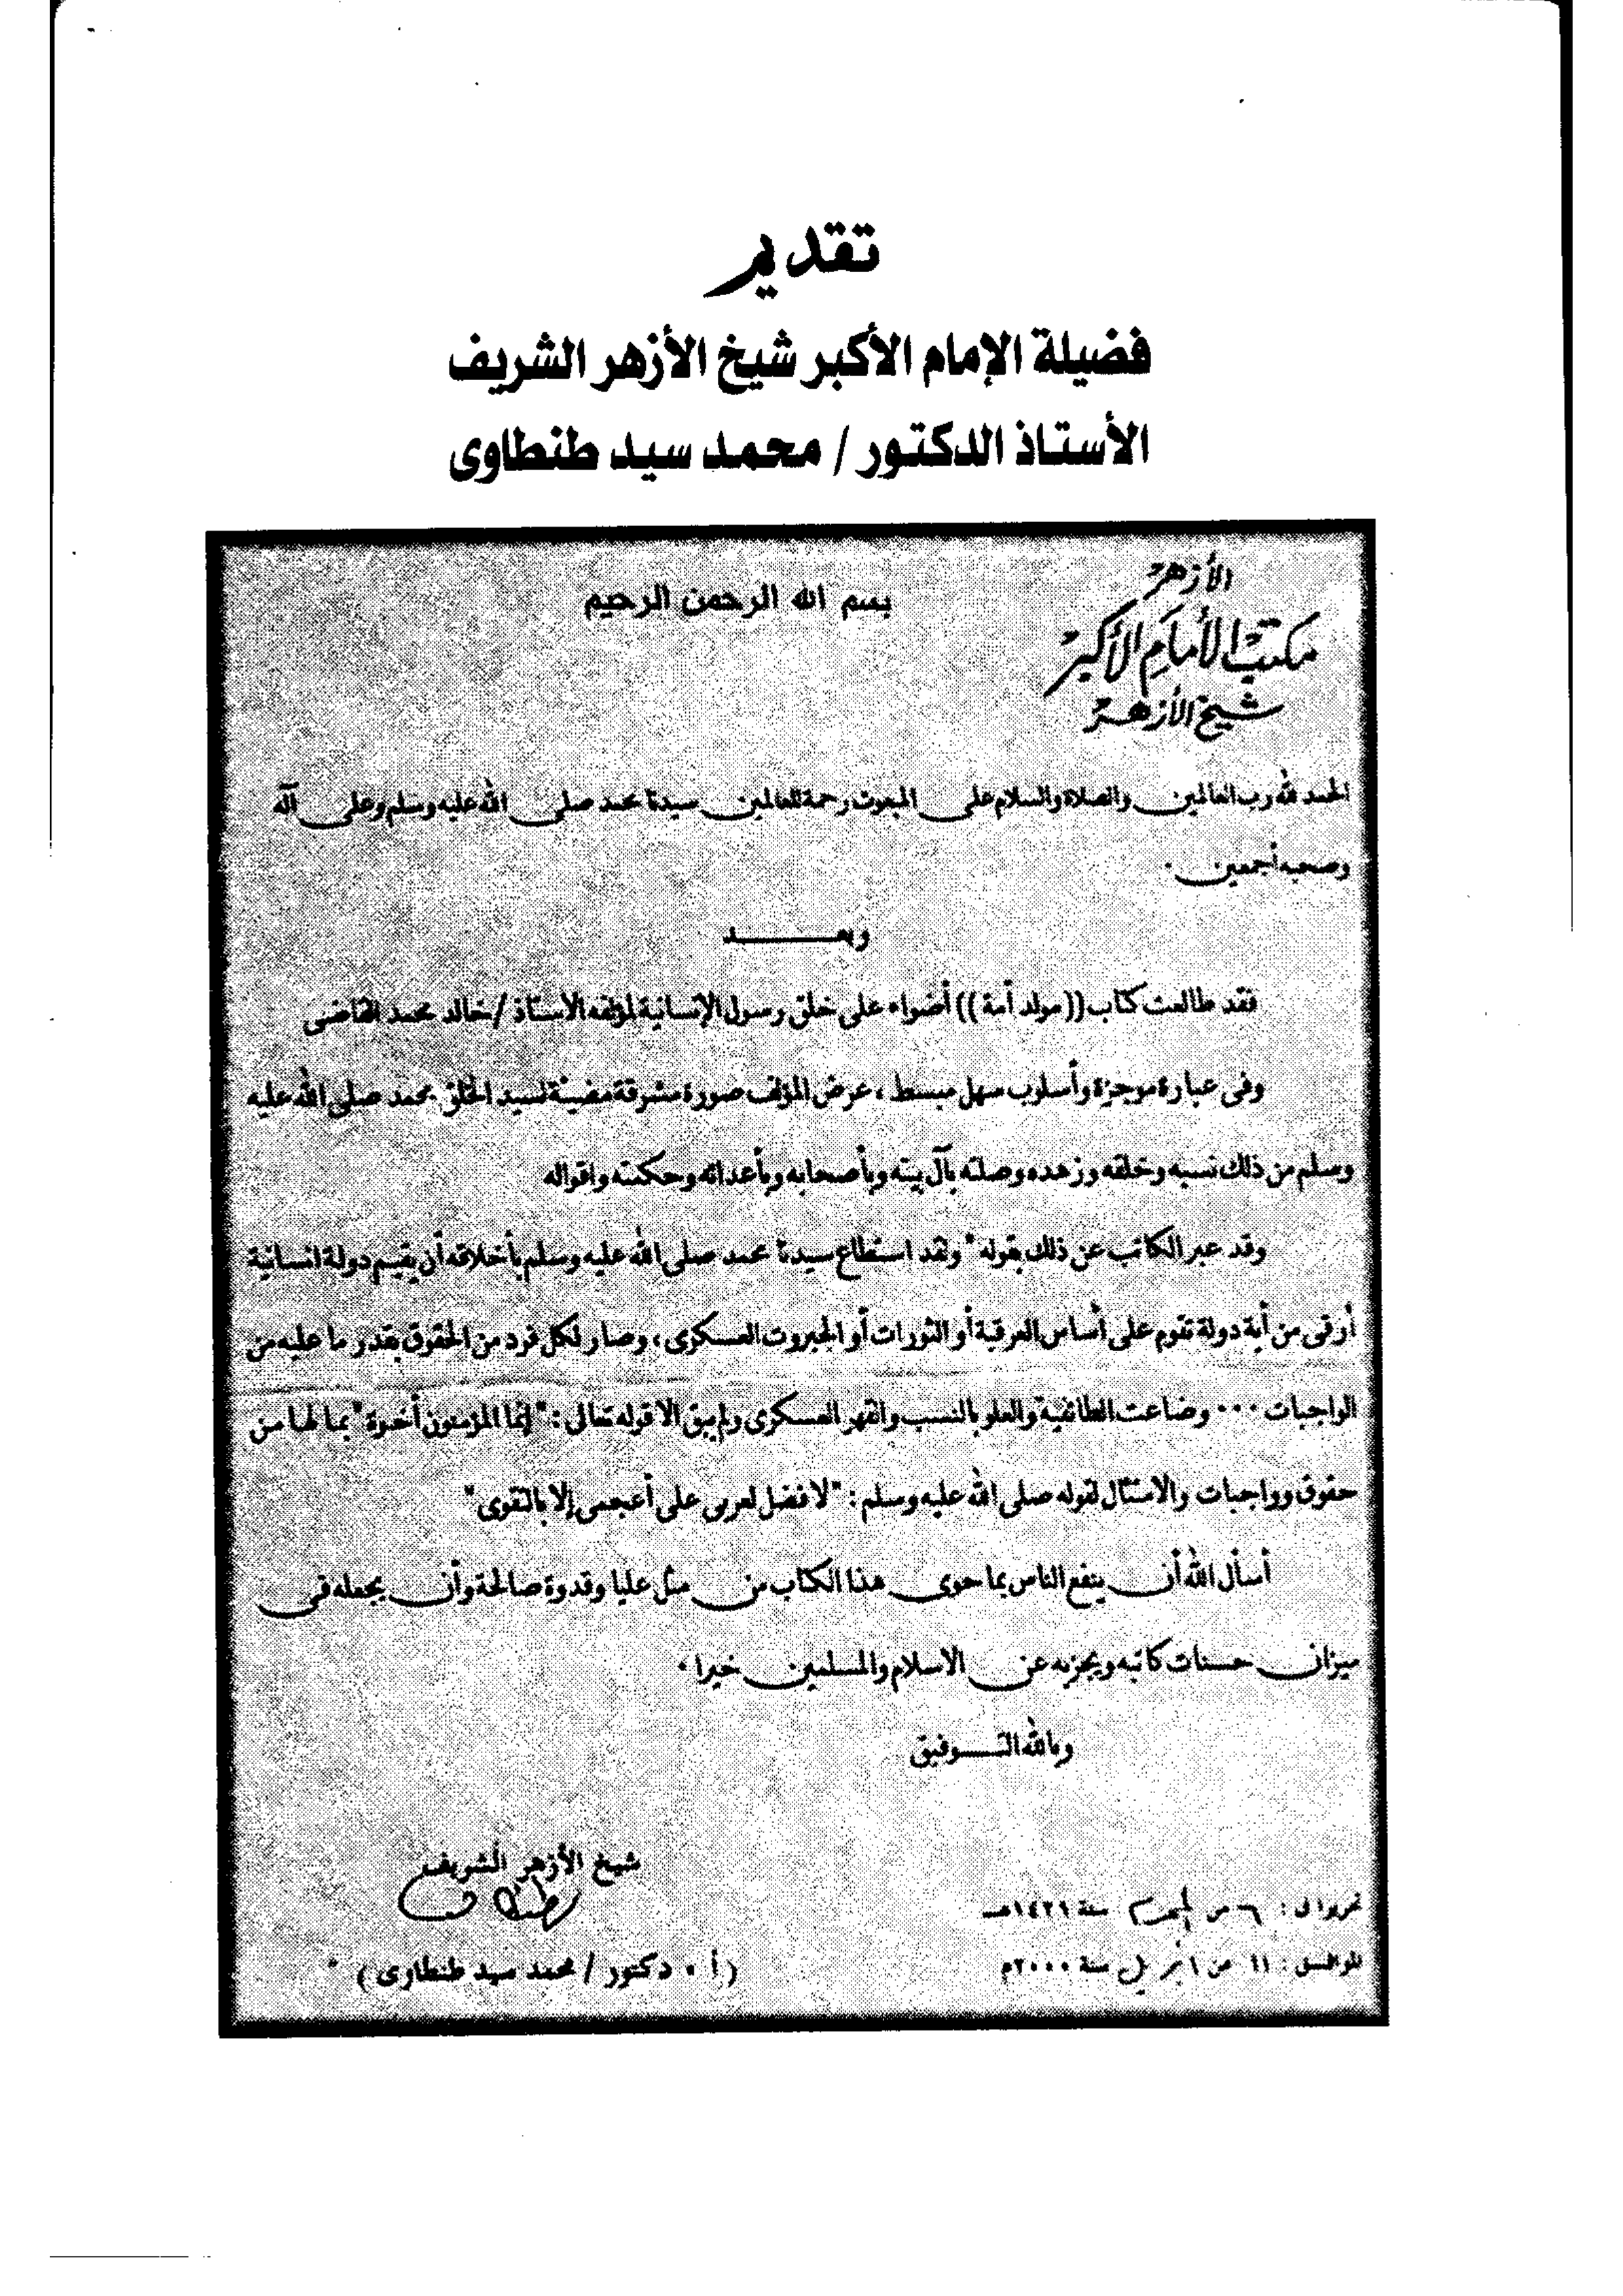 تقديم
فضيلة الإمام الأكبر شيخ الأزهر الشريف
الأستاذ الدكتور / محمد سيد طنطاوى
الأزهر
مكتب الأمام الأكبر
شيخ الأزهر
بسم الله الرحمن الرحيم
الحمد لله رب العالمين والصلاة والسلام على المبعوث رحمة للعالمين سيدنا محمد صلى الله عليه وسلم وعلى آله
وصحبه أجمعين .
وبعد
فقد طالعت كتاب ((مولد أمة)) أضواء على خلق رسول الإنسانية لمؤلفه الاستاذ / خالد محمد القاضى
وفى عبارة موجزة وأسلوب سهل مبسط ، عرض المؤلف صورة مشرقة مضيئة لسيد الخلق محمد صلى الله عليه
وسلم من ذلك نسبه وخلقه وزهده وصلته بآل بيته وبأصحابه وبأعدائه وحكمته واقواله
وقد عبر الكاتب عن ذلك بقوله " ولقد استطاع سيدنا محمد صلى الله عليه وسلم بأخلاقه أن يقيم دولة انسانية
أرقى من أية دولة تقوم على أساس العرقية أو الثورات أو الجبروت العسكرى ، وصار لكل فرد من الحقوق بقدر ما عليه من
الواجبات ... وضاعت الطائفية والعلو بالنسب والقهر العسكرى ولم يبق الا قوله تعالى : " إنما المؤمنون أخوة " بما لها من
حقوق وواجبات والامتثال لقوله صلى الله عليه وسلم : " لا فضل لعربى على أعجمى إلا بالتقوى "
أسأل الله أن ينفع الناس بما حوى هذا الكتاب من مثل عليا وقدوة صالحة وأن يجعله فى
ميزان حسنات كاتبه ويجزيه عن الاسلام والمسلمين خيرا .
وبالله التوفيق
شيخ الأزهر الشريف
(أ . دكتور / محمد سيد طنطاوى)
تحريرا فى : ٦ من المحرم سنة ١٤٢١هـ
الموافق : ١١ من ابريل سنة ٢٠٠٠م